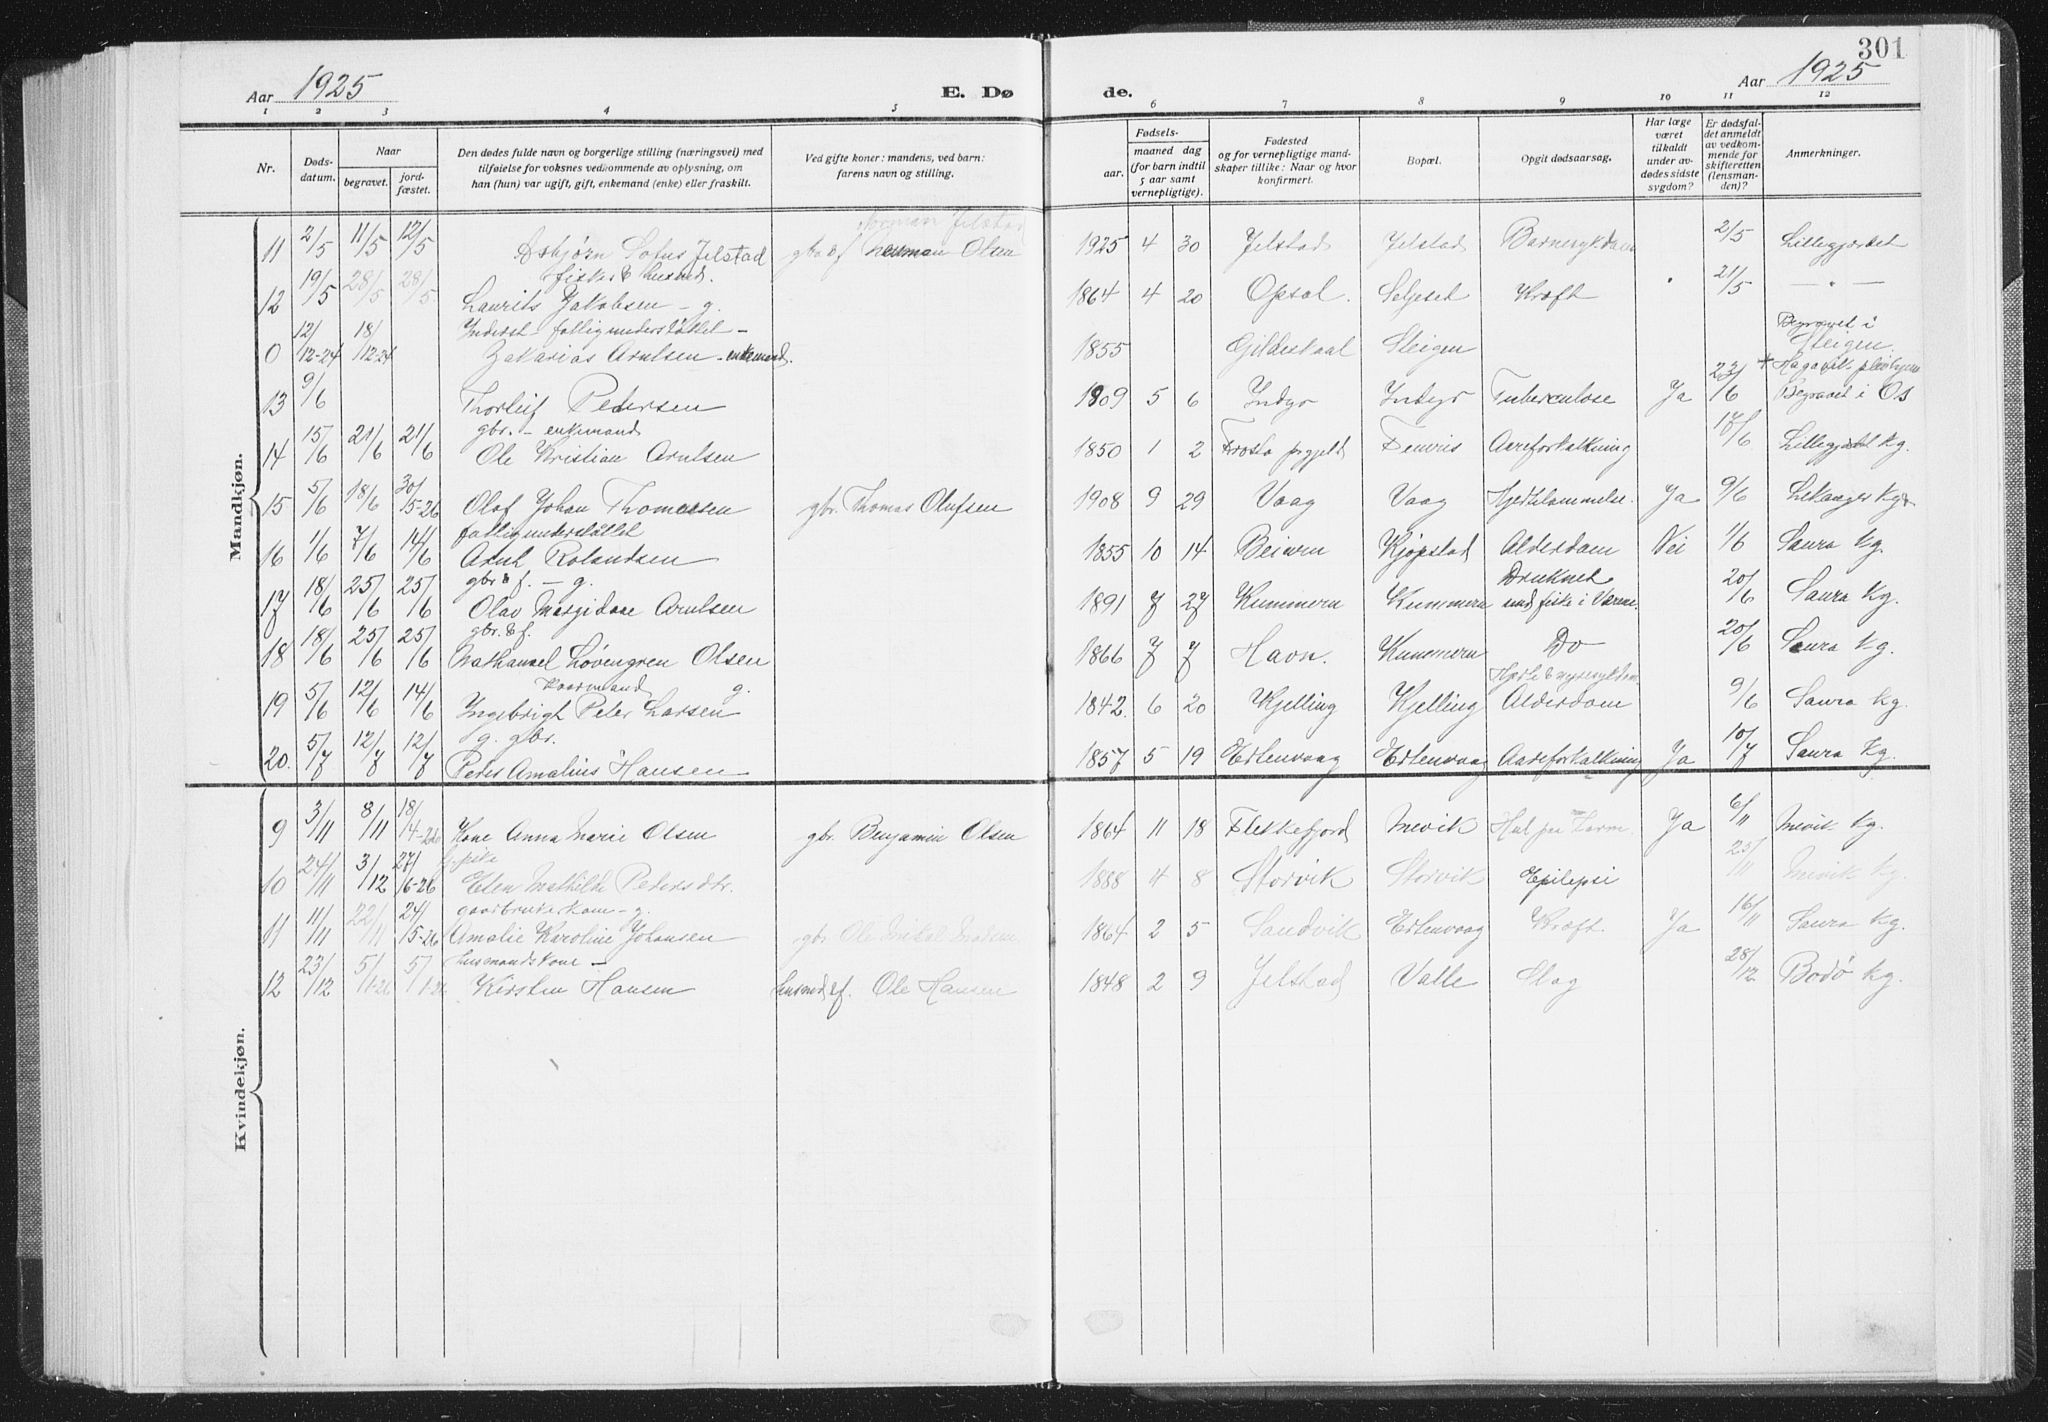 301
Aar 1925 E. Dø de. Aar 1925
1 2 3 4 5 6 7 8 9 10 11 12
Nr. Døds-datum. Naar begravet. jord-fæstet. Den dødes fulde navn og borgerlige stilling (næringsvei) med tilføielse for voksnes vedkommende av oplysning, om han (hun) var ugift, gift, enkemand (enke) eller fraskilt. Ved gifte koner: mandens, ved barn: farens navn og stilling. Fødsels- aar. maaned dag (for barn indtil 5 aar samt vernepligtige). Fødested og for vernepligtige mandskaper tillike: Naar og hvor konfirmert. Bopæl. Opgit dødsaarsag. Har læge været tilkaldt under avdødes sidste sygdom? Er dødsfaldet anmeldt av vedkommende for skifteretten (lensmanden)? Anmerkninger.
Mandkjøn.
Norman Jelstad
11 2/5 11/5 12/5 Asbjørn Sofus Jelstad gbr & f Olsen 1925 4 30 Jelstad Jelstad Barnesykdom 2/5 Lillegjordet
fisker & husmd.
12 19/5 28/5 28/5 Laurits Jakobsen - g. 1864 4 20 Opsal. Seljeset Kræft " 21/5 — " —
Inderst - fattigunderstøttet -
0 12/12-24 18/12-24 Zakarias Arntsen - enkemand. 1855 Gildeskaal Steigen Begravet i Steigen.
13 9/6 Thorleif Pedersen 1909 5 6 Indyr Indyr Tuberculose Ja 23/6 + Hagavik pleiehjem Begravet i Os
gbr. - enkemand
14 15/6 21/6 21/6 Ole Kristian Arntsen 1850 1 2 Frosta prgjeld Fenvis Aareforkalkning 17/6 Lillegjordet kg.
15 5/6 18/6 30/5-26 Olaf Johan Thomassen gbr. Thomas Olufsen 1908 9 29 Vaag Vaag Hjertelammelse. Ja 9/6 Lekanger Kg.
fattigunderstøttet
16 1/6 7/6 14/6 Arnt Rolandsen 1855 10 14 Beiarn Kjøpstad Alderdom Nei 1/6 Saura Kg.
gbr & f. — g.
17 18/6 25/6 25/6 Olav Arntsen 1891 7 27 Kunnern Kunnern Druknet und fiske i Værne. 20/6 Saura Kg.
gbr. & f.
18 18/6 25/6 25/6 Nathanael Løvengren Olsen 1866 7 7 Havn. Kunnern Do 20/6 Saura Kg.
Kaarmand g.
19 5/6 12/6 14/6 Ingebrigt Peter Larsen 1842. 6 20 Kjelling Kjelling Hjerte & nyresykdom Alderdom 9/6 Saura Kg.
g. gbr.
20. 5/7 12/7 12/7 Peder Amalius Hansen 1857 5 19 Ertenvaag Ertenvaag Aareforkalkning Ja 10/7 Saura Kg.
Kvindekjøn.
9 3/11 8/11 18/14-226 Kone Anna Marie Olsen gbr. Benjamin Olsen 1864 11 18 Flekkefjord Mevik Hul paa Tarm. Ja 6/11 Mevik Kg.
10 24/11 3/12 27/6-26 Elen Mathilde Pedersdtr. 1888 4 8 Storvik Storvik Epilepsi 25/11 Mevik Kg.
gaardbrukerkone - g.
11 11/11 22/11 24/5-26 Amalie Karoline Johansen gbr Ole Mikal Madsen 1864 2 5 Sandvik Ertenvaag Kræft. Ja 16/11 Saura Kg.
husmandskone —
12 23/12 5/1-26 5/1-26 Kirsten Hansen husmd & f. Ole Hansen 1848 2 9 Jelstad Valle Slag 28/12 Bodø Kg.